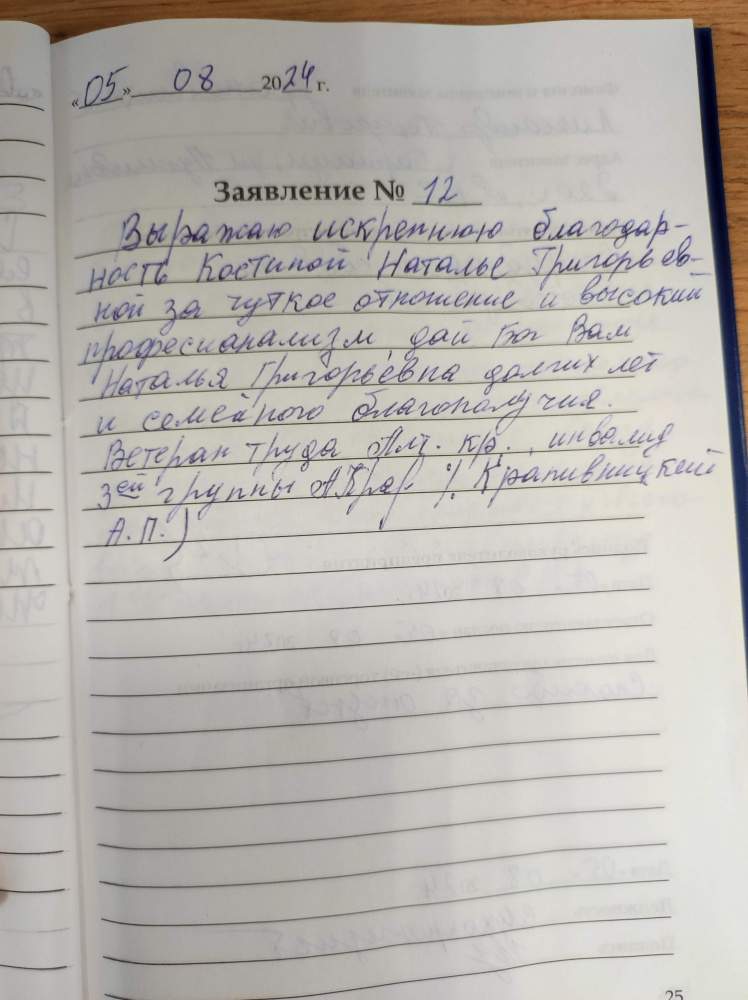 «05» 08 2024 г.
Заявление № 12
Выражаю искреннюю благодар-
ность Костиной Наталье Григорьев-
ной за чуткое отношение и высокий
професианализм, дай Бог Вам
Наталья Григорьевна долгих лет
и семейного благополучия.
Ветеран труда Алт. кр., инвалид
3ей группы
А.П.)
25